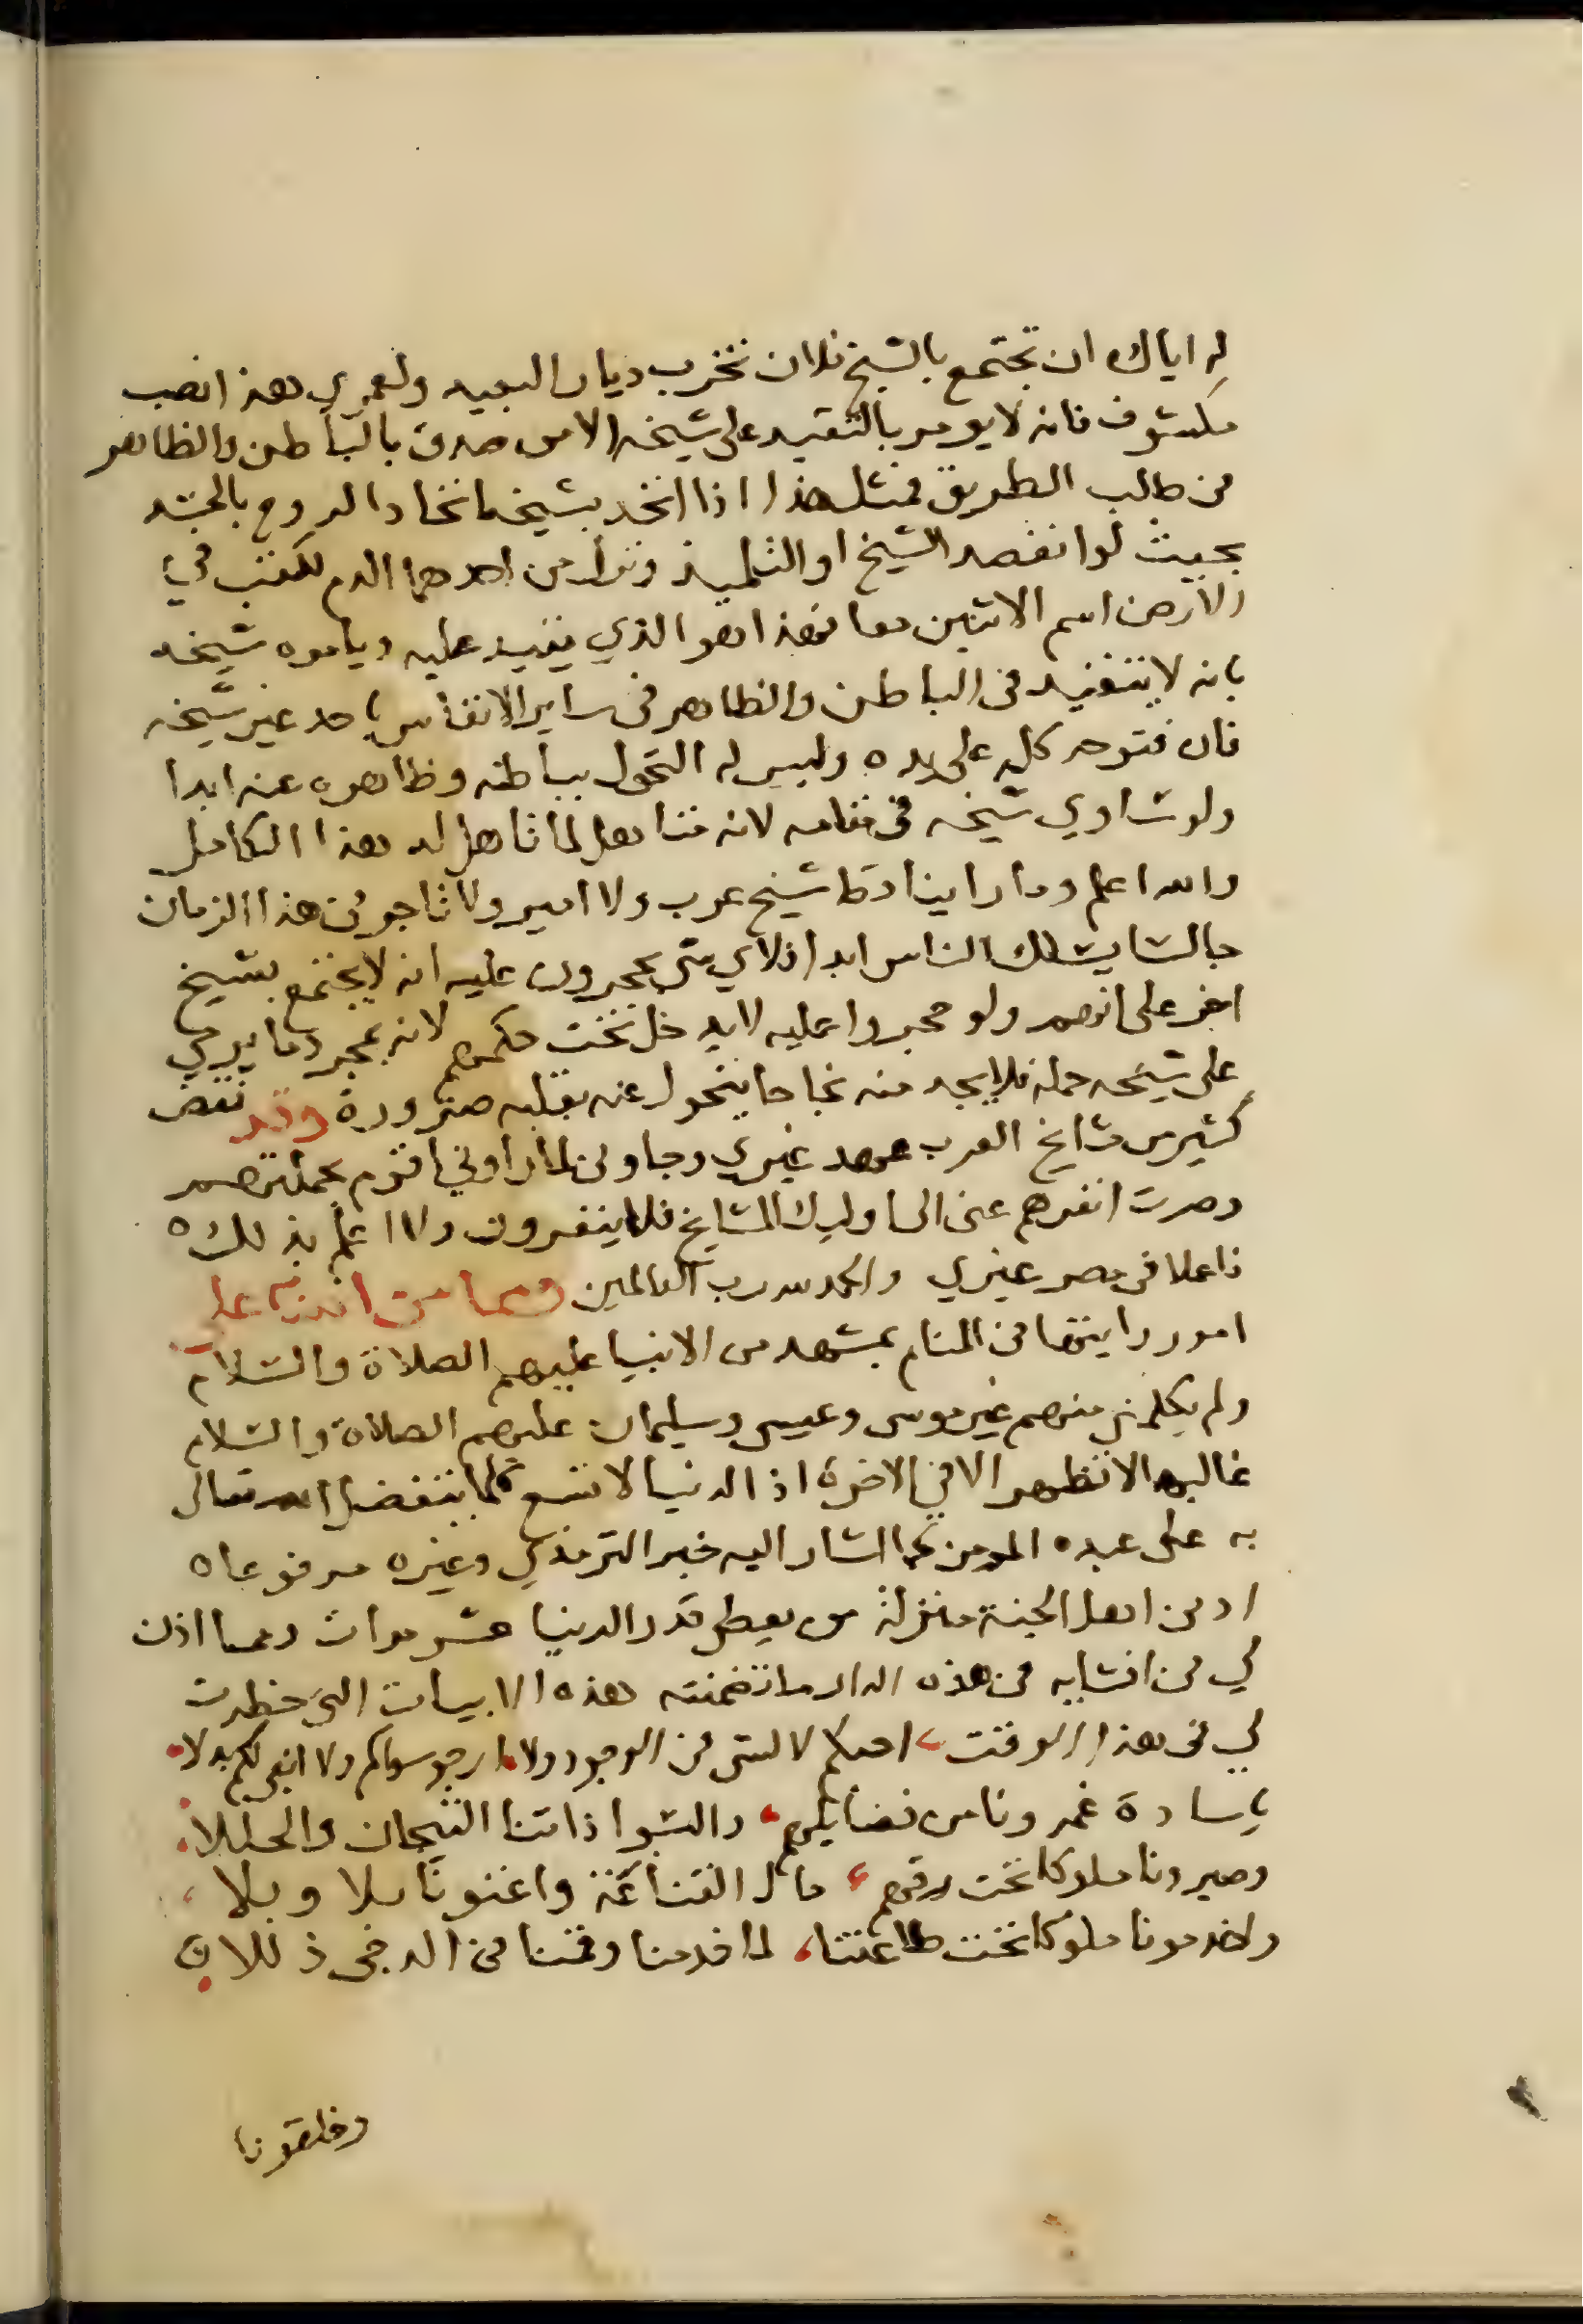 له اياك ان تجتمع بالشيخ فلان تخرب ديار البعيد ولعمري هذا نصب
مكشوف فانه لا يومر بالتقيد على شيخه الا من صدق بالباطن والظاهر
من طالب الطريق فمثل هذا اذا اتحد بشيخه اتحاد الروح بالجسد
بحيث لو انفصد الشيخ او التلميذ ونزل من احدهما الدم لكتب في
الارض اسم الاثنين معا فهذا هو الذي يتقيد عليه ويامره شيخه
بانه لا يتقيد في الباطن والظاهر في ساير الانفاس باحد غير شيخه
فان فتوحه كله على يده وليس له التحول بباطنه وظاهره عنه ابدا
ولو ساوي شيخه في مقامه لانه تاهل لما تاهل له هذا الكامل
والله اعلم وما راينا قط شيخ عرب ولا امير ولا تاجر في هذا الزمان
جا لنا يسلك الناس ابدا فلاي شي يحجرون عليه انه لا يجتمع بشيخ
اخر على انهم ولو حجروا عليه لا يدخل تحت حكمهم لانه بمجرد ما يرمي
على شيخه حمله فلا يجد منه نجاحا يتحول عنه بقلبه ضرورة وقد نقض
كثير من مشايخ العرب عهد غيري وجاوني لما راوني اقوم بحملتهم
وصرت انفرهم عني الى اوليك المشايخ فلا ينفرون ولا اعلم بذلك
فاعلا في مصر غيري والحمد لله رب العالمين ومما من الله به علي
امور رايتها في المنام بمشهد من الانبيا عليهم الصلاة والسلام
ولم يكلمني منهم غير موسى وعيسى وسليمان عليهم الصلاة والسلام
غالبها لا تظهر الا في الاخرة اذ الدنيا لا تسع كلما يتفضل الله تعالى
به على عبده المومن كما اشار اليه خبر الترمذي وغيره مرفوعا
ادنى اهل الجنة منزلة من يعطى قدر الدنيا عشر مرات ومما اذن
لي في افشايه في هذه الدار ما تضمنته هذه الابيات التي خطرت
لي في هذا الوقت احبكم لا لشي في الوجود ولا ارجو سواكم ولا ابغي لكم بدلا
يا سادة غمرونا من فضايلهم والبسوا ذاتنا التيجان والحللا
وصيرونا ملوكا تحت رقهم مال القناعة واغنونا بلا وبلا
واخدمونا ملوكا تحت طاعتنا لما خدمنا وقمنا في الدجى ذللا
وخلقونا